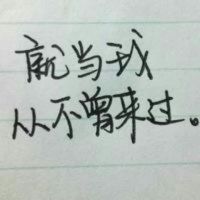 就当我
从不曾来过。